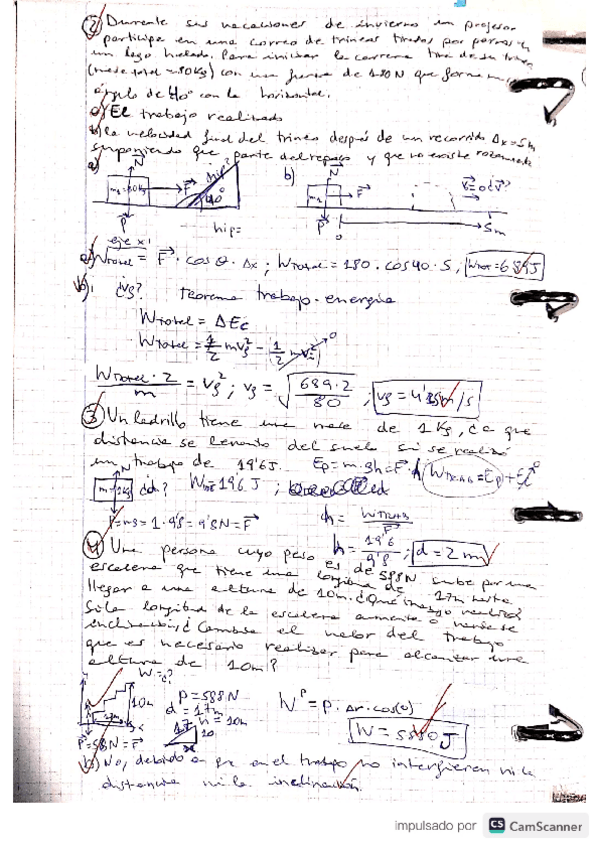 ② Durante sus vacaciones de invierno un profesor
participa en una carrera de trineos tirados por perros en
un lago helado. Para iniciar la carrera tira de su trineo
(masa total = 80 kg) con una fuerza de 180 N que forma un
ángulo de 40° con la horizontal.
a) El trabajo realizado
b) la velocidad final del trineo después de un recorrido Δx=5m
suponiendo que parte del reposo y que no existe rozamiento
a) N m=80kg F P hip? 40°
b) N F P 0 5m
hip=
eje x:
a) Wtotal = F · cos θ · Δx ; Wtotal = 180 · cos 40 · 5 ; Wtot = 689J
b) vf? teorema trabajo-energía
Wtotal = ΔEc
Wtotal = 1/2 mvf² - 1/2 mvi² 0
Wtotal · 2 / m = vf² ; vf = √(689·2 / 80) ; vf = 4'15 m/s
③ Un ladrillo tiene una masa de 1 kg, ¿a que
distancia se levanta del suelo si se realizó
un trabajo de 19'6 J. Ep = m·gh = F·h
N m=1kg ¿d? Wtot 19'6 J ;
P=mg = 1·9'8 = 9'8N = F h = F
h = 19'6 / 9'8 ; d = 2 m
④ Una persona cuyo peso es de 588N sube por una
escalera que tiene una longitud de 17m hasta
llegar a una altura de 10m. ¿Qué trabajo realizó?
Si la longitud de la escalera aumenta o varía se
inclinación, ¿Cambia el valor del trabajo
que es necesario realizar para alcanzar una
altura de 10m?
W=¿?
10m P = 588 N
d = 17m
h = 10m
17 10
Wᴾ = P · Δr · cos(0)
W = 5880 J
P=58N = F
b) No, debido a que en el trabajo no intergfieren ni la
distancia ni la inclinación.
impulsado por CS CamScanner